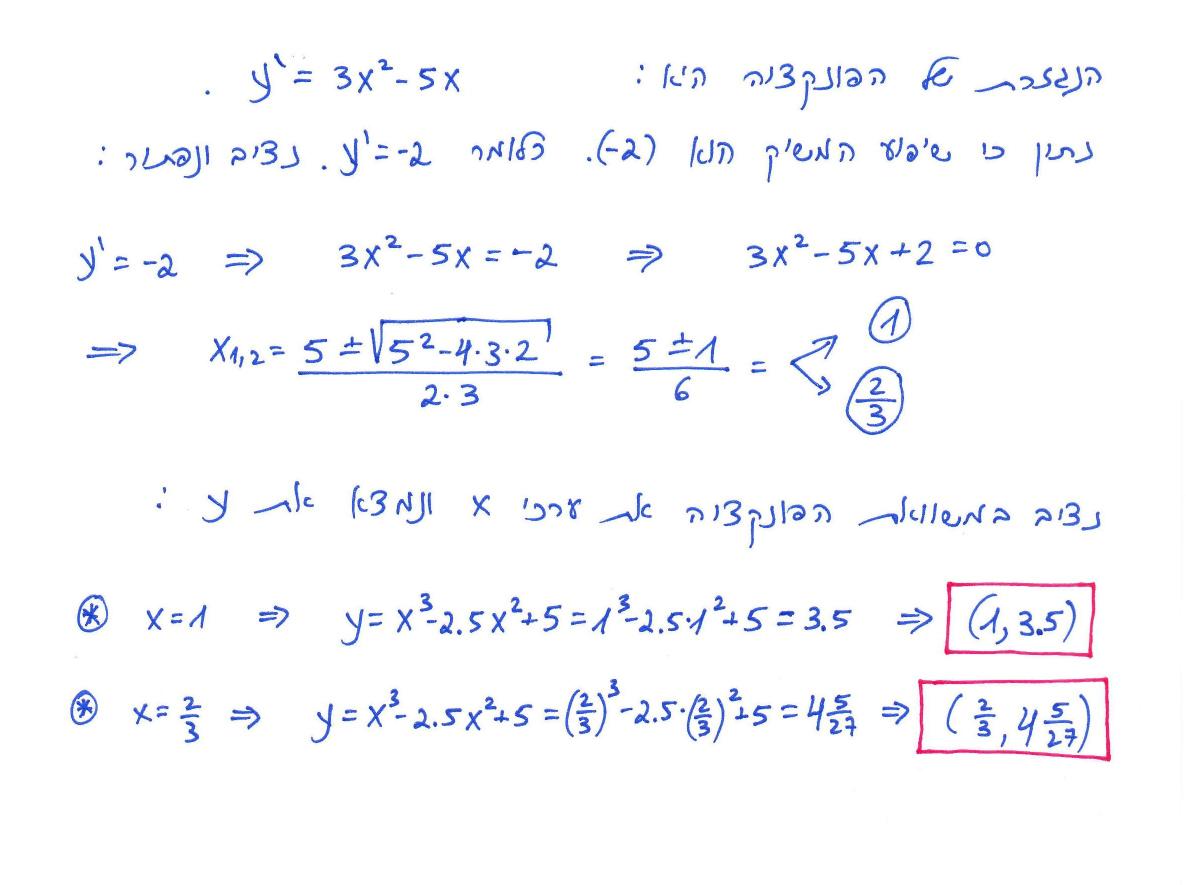 הנגזרת של הפונקציה היא : y' = 3x² - 5x .
נתון כי שיפוע המשיק הוא (-2). כלומר y' = -2 . נציב ונפתור :
y' = -2 ⇒ 3x² - 5x = -2 ⇒ 3x² - 5x + 2 = 0
⇒ x₁,₂ = (5 ± √(5² - 4·3·2)) / (2·3) = (5 ± 1) / 6 = < 1, 2/3
נציב במשוואת הפונקציה את ערכי x ונמצא את y :
⊛ x = 1 ⇒ y = x³ - 2.5x² + 5 = 1³ - 2.5·1² + 5 = 3.5 ⇒ (1, 3.5)
⊛ x = 2/3 ⇒ y = x³ - 2.5x² + 5 = (2/3)³ - 2.5·(2/3)² + 5 = 4 5/27 ⇒ (2/3, 4 5/27)